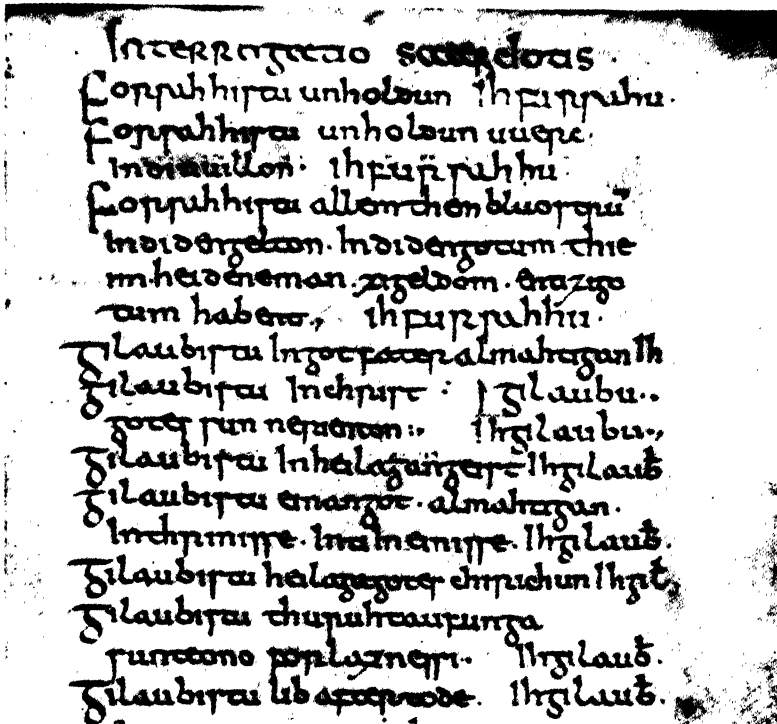 Interrogatio sacerdotis.
Forsahhistu unholdun Ih fursahu.
Forsahhistu unholdun uuerc.
Indiuuillon. ihfursahhu
Forsahhistu allem them bluostrum
Indiden gelton. Indiden gotum thie
im heidene man. zi geldom. enti zigo
tum habent., ihfursahhu.
Gilaubistu In got fater almahtigan Ih
Gilaubistu Inchrist : gilaubu.,
gotes sun nerienton:, Ihgilaubu.,
Gilaubistu In heilagan geist Ihgilaub̄
Gilaubistu einan got. almahtigan.
Inthrinisse. Inti In einisse. Ihgilaub̄.
Gilaubistu heilaga gotes chirichun Ihgil̄,
Gilaubistu thuruh taufunga
sunteono forlaznessi. Ihgilaub̄.
Gilaubistu lib after tode. Ihgilaub̄.